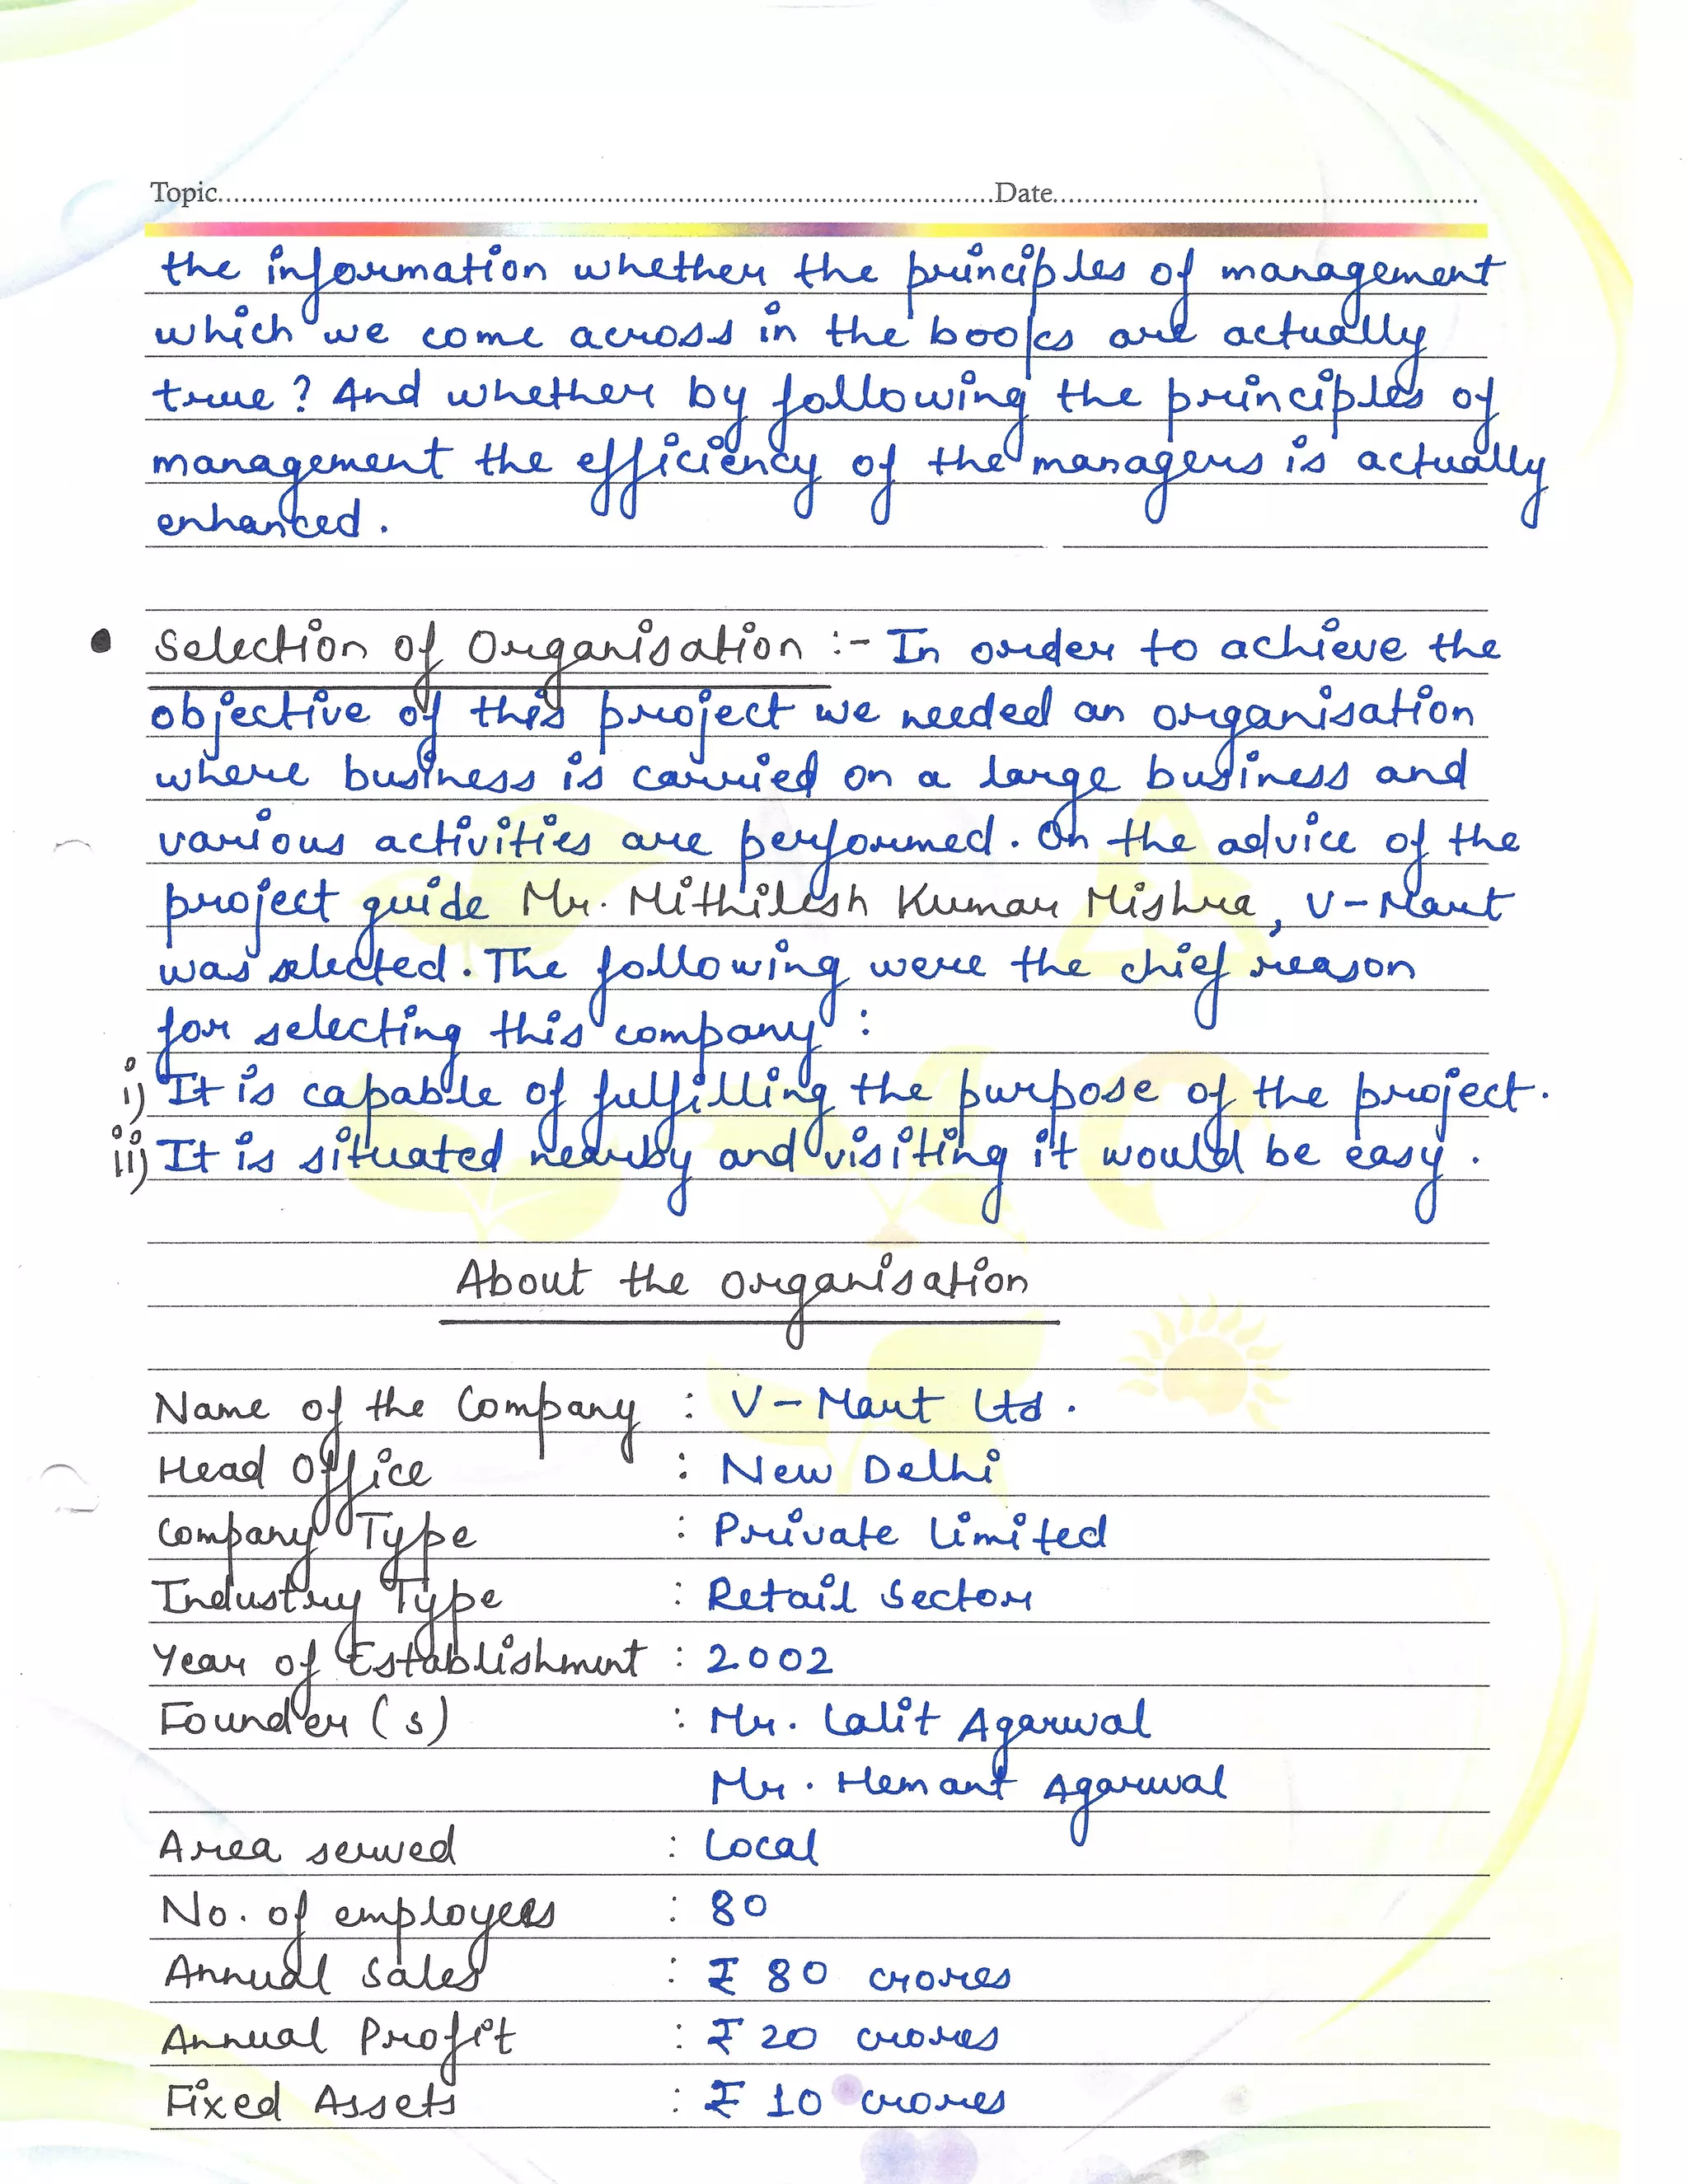 Topic....................Date....................
the information whether the principles of management
which we come across in the books are actually
true? And whether by following the principles of
management the efficiency of the managers is actually
enhanced.
• Selection of Organisation :- In order to achieve the
objective of this project we needed an organisation
where business is carried on a large business and
various activities are performed. On the advice of the
project guide Mr. Mithilesh Kumar Mishra, V-Mart
was selected. The following were the chief reason
for selecting this company :
i) It is capable of fulfilling the purpose of the project.
ii) It is situated nearby and visiting it would be easy.
About the organisation
Name of the Company : V-Mart Ltd.
Head Office : New Delhi
Company Type : Private Limited
Industry Type : Retail Sector
Year of Establishment : 2002
Founder(s) : Mr. Lalit Agarwal
Mr. Hemant Agarwal
Area served : Local
No. of employees : 80
Annual Sales : ₹ 80 crores
Annual Profit : ₹ 20 crores
Fixed Assets : ₹ 10 crores